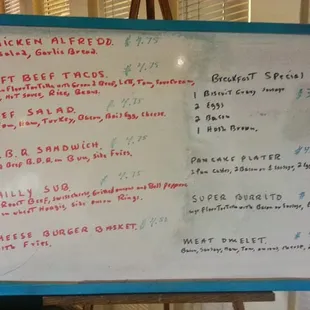 HICKEN ALFREDO. $
Salad, Garlic Bread.
FT BEEF TACOS.
Flour Tortilla with Ground Beef, Let, Tom,
Hot Sauce, Rice, Beans.
EF SALAD.
Ham, Turkey, Bacon, Boil Egg, Cheese.
B.Q SANDWICH.
Beef B.B.Q. on Bun, Side Fries,
ILLY SUB.
Roast Beef, Swiss, Grilled onions and Bell Peppers
on wheat Hoagie, side onion Rings.
HEESE BURGER BASKET.
with Fries.
BREAKFAST SPECIAL
1 Biscuit Gravy Sausage
2 Eggs
2 Bacon
1 Hash Brown.
PANCAKE PLATER
2 Pan Cakes, 2 Bacon or 2 Sausage, 2
SUPER BURRITO
w/ Flour Tortilla with Bacon or Sausage,
MEAT OMELET.
Bacon, Sausage, Ham, Tom, onions, cheese,